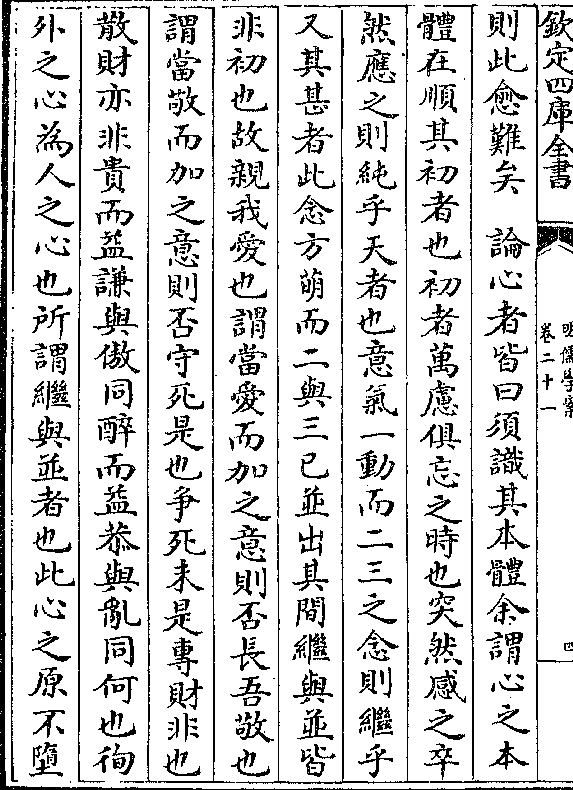 欽定四庫全書
明儒學案
卷二十一
四
則此愈難矣　論心者皆曰須識其本體余謂心之本
體在順其初者也初者萬慮俱忘之時也突然感之卒
然應之則純乎天者也意氣一動而二三之念則繼乎
又其甚者此念方萌而二與三已並出其間繼與並皆
非初也故親我愛也謂當愛而加之意則否長吾敬也
謂當敬而加之意則否守死是也爭死未是專財非也
散財亦非貴而益謙與傲同醉而益恭與亂同何也徇
外之心為人之心也所謂繼與並者也此心之原不墮